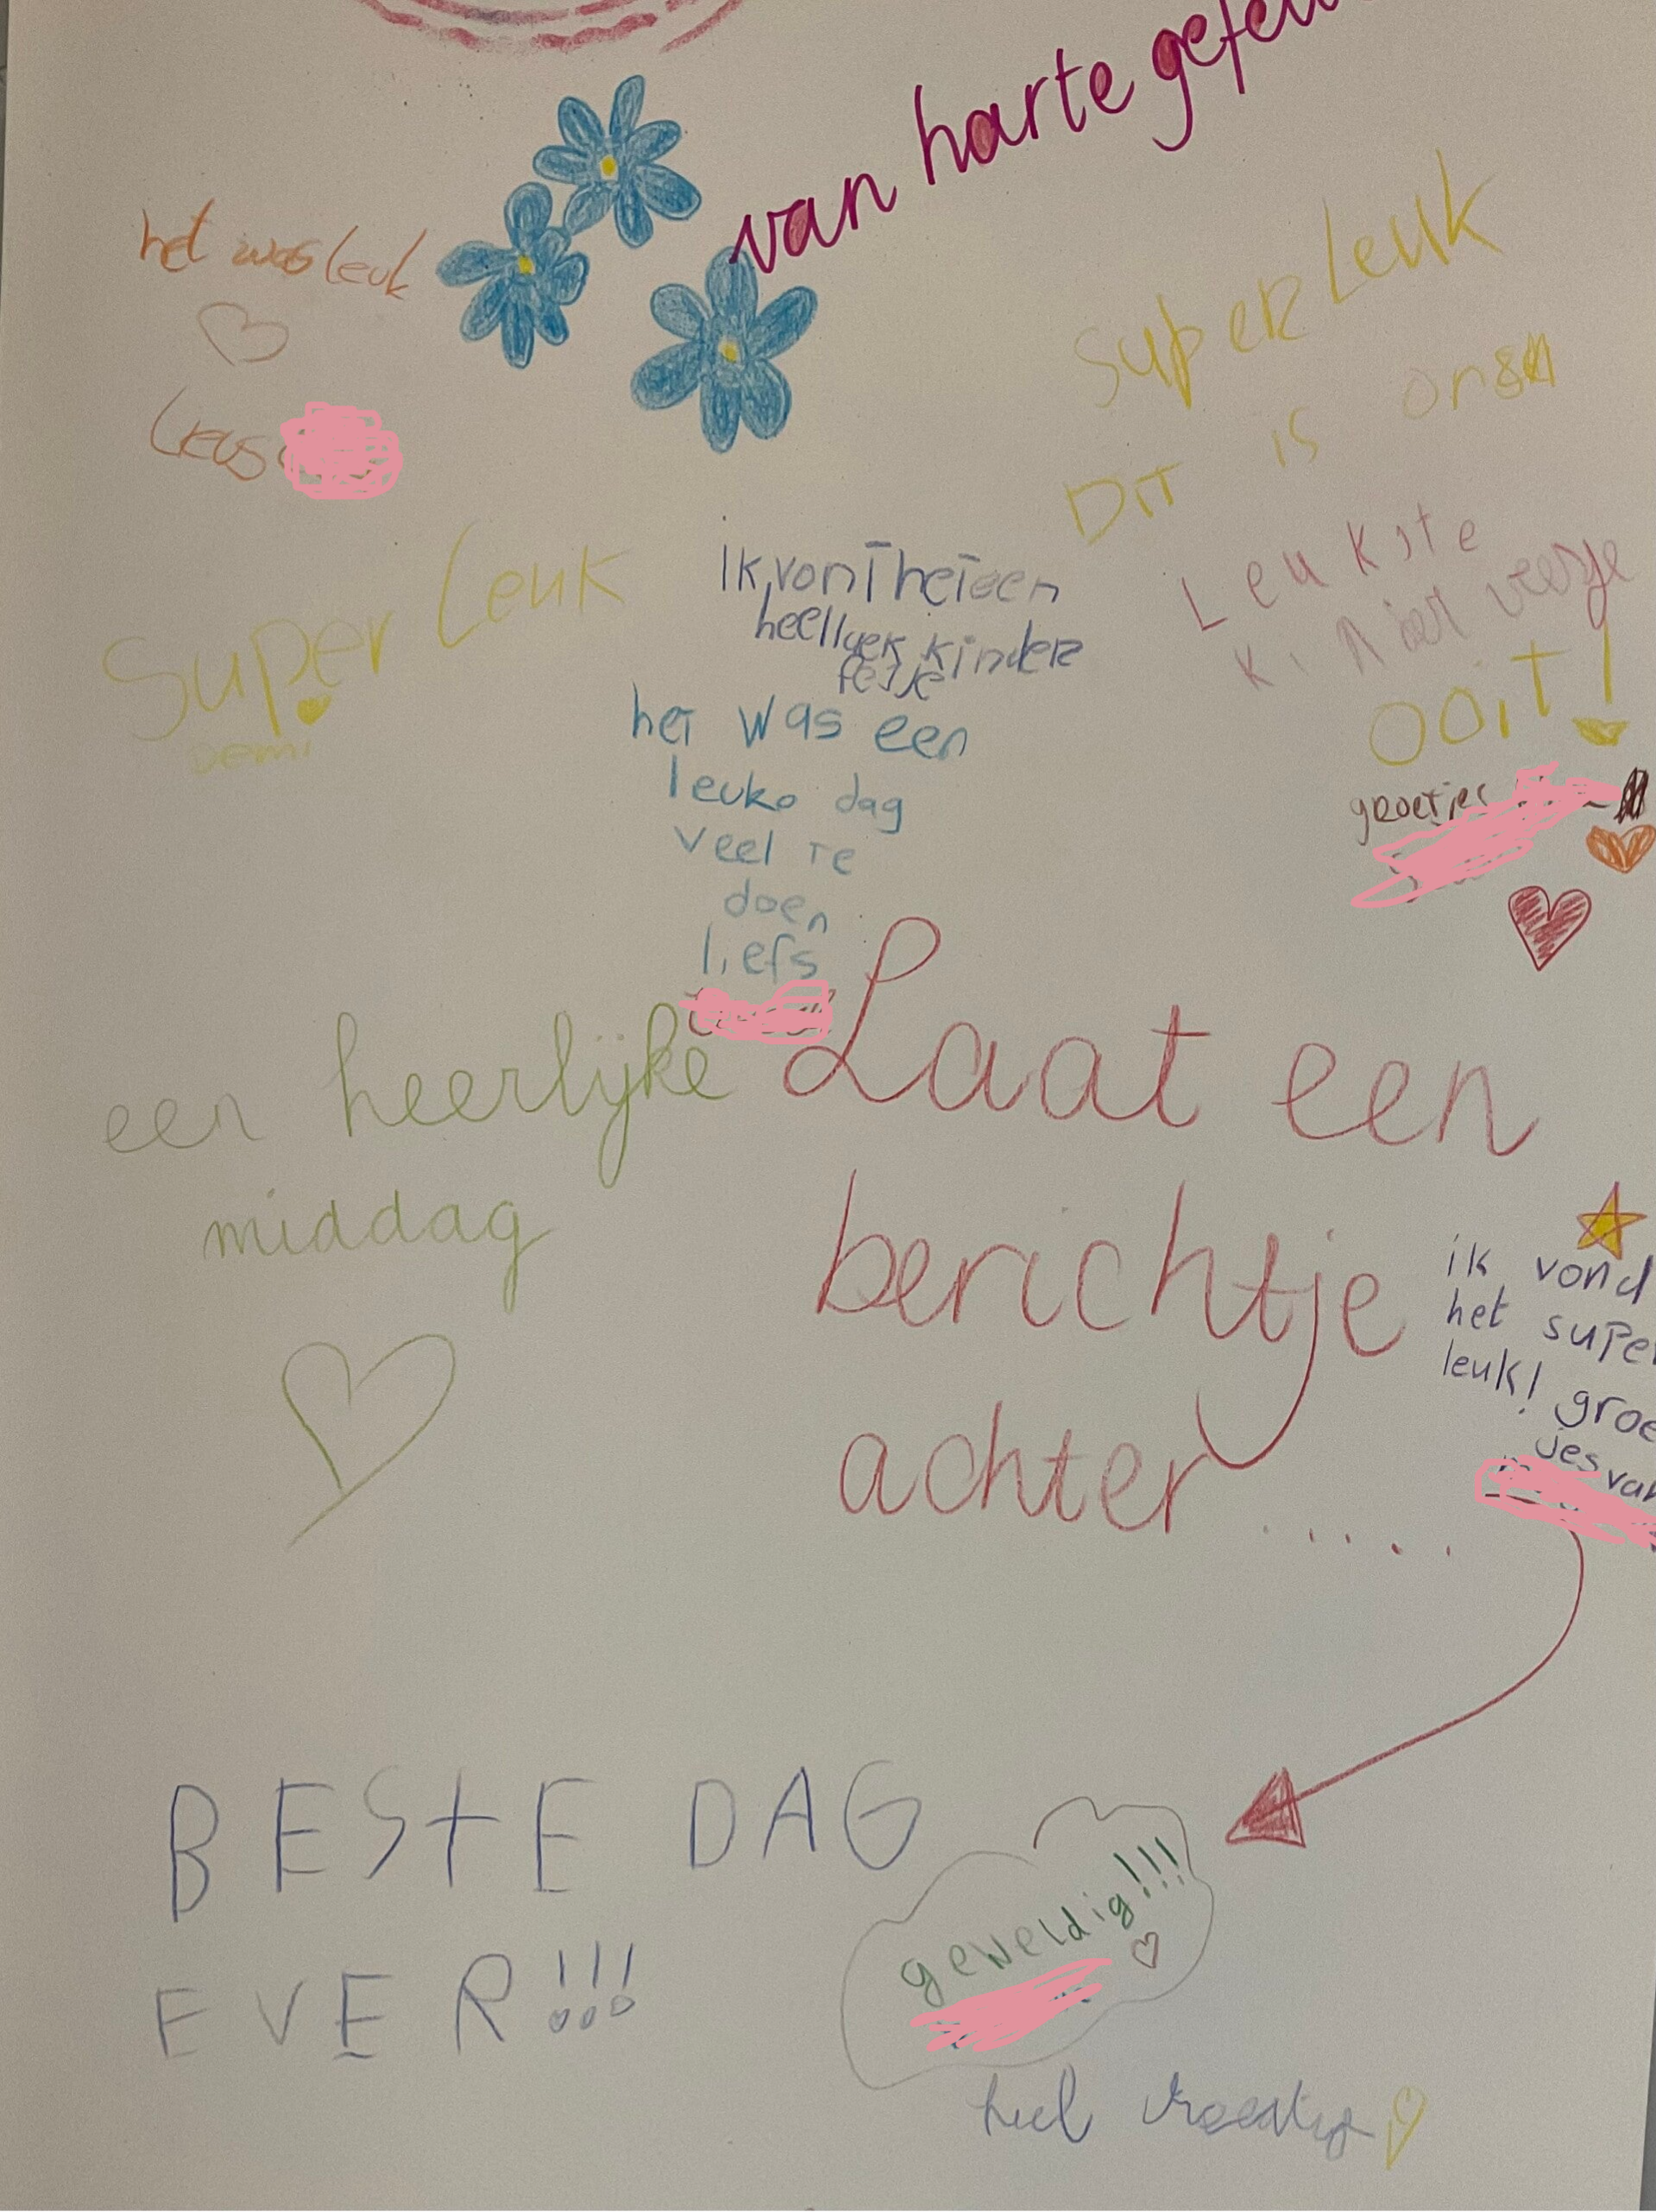 van harte gefe
het was leuk
super Leuk
DiT is
Leukste
OOiT!
groetjes
Super Leuk
Demi
ik vonT heT een
heel luek kinder
fesje
heT was een
leuke dag
veel Te
doen
liefs
een heerlijke
middag
Laat een
berichtje
achter.....
ik vond
het super
leuk! groe
jes van
BESTE DAG
EVER!!!
geweldig!!!
heel